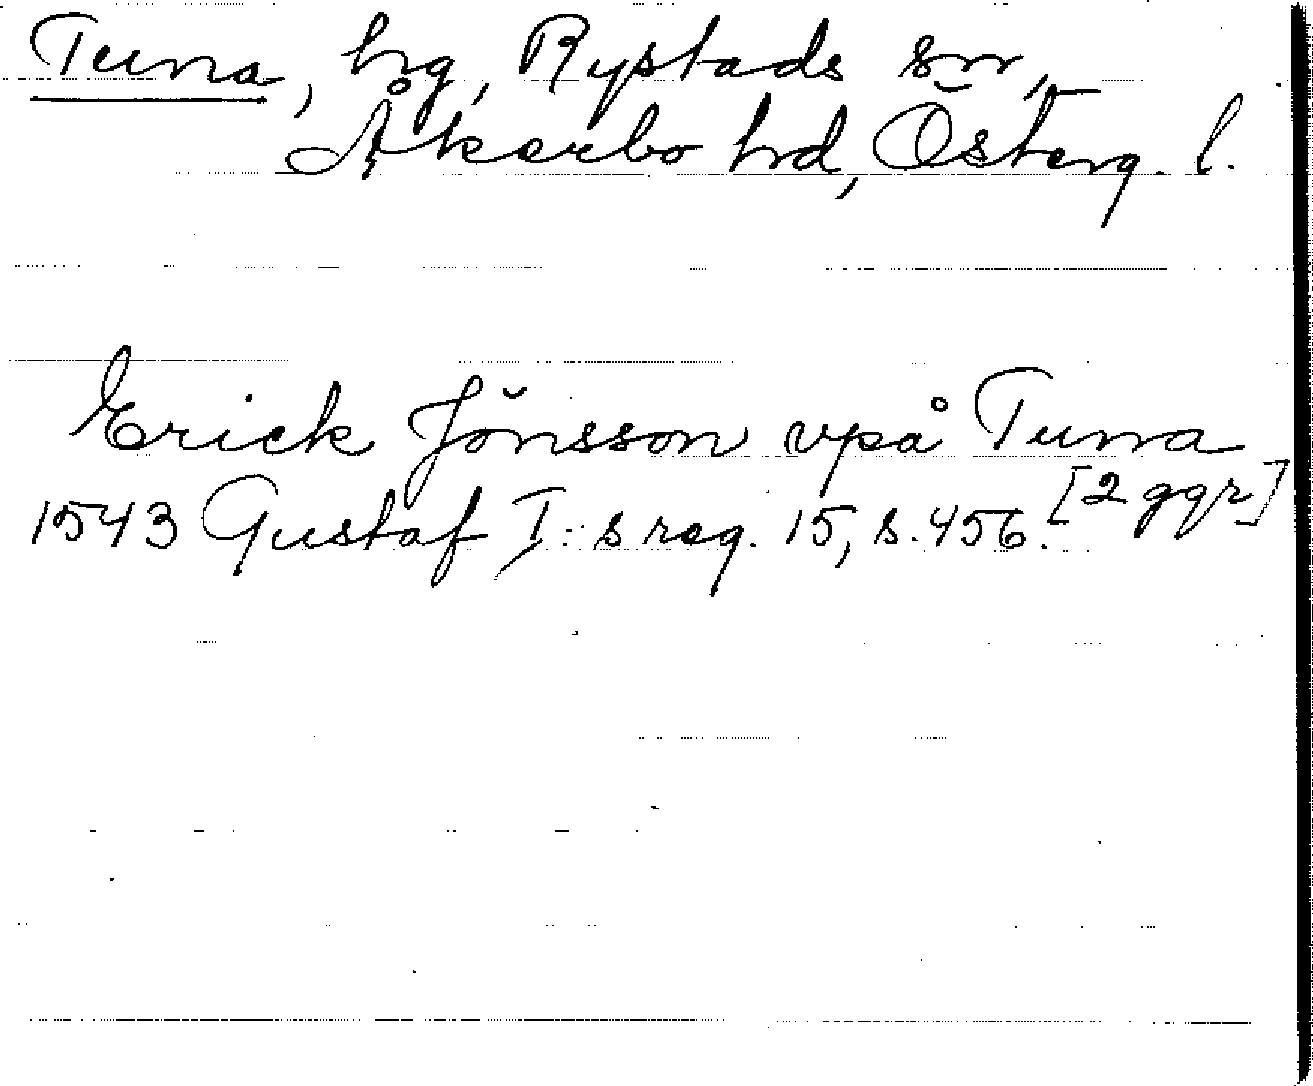 Tuna, hg, Rystads sn,
Åkerbo hd, Österg. l.
Erick Jönsson vpå Tuna
1543 Gustaf I:s reg. 15, s. 456. [2 ggr]